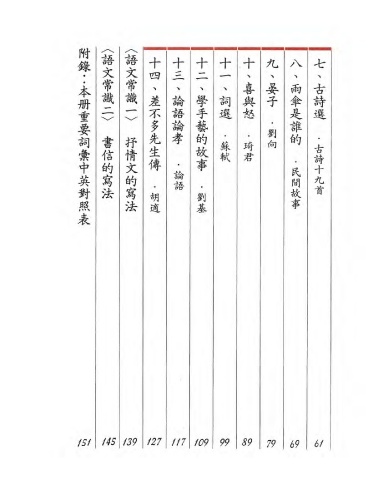 七、古詩選．古詩十九首 61
八、雨傘是誰的．民間故事 69
九、晏子．劉向 79
十、喜與怒．琦君 89
十一、詞選．蘇軾 99
十二、學手藝的故事．劉基 109
十三、論語論孝．論語 117
十四、差不多先生傳．胡適 127
〈語文常識一〉 抒情文的寫法 139
〈語文常識二〉 書信的寫法 145
附錄：本册重要詞彙中英對照表 151